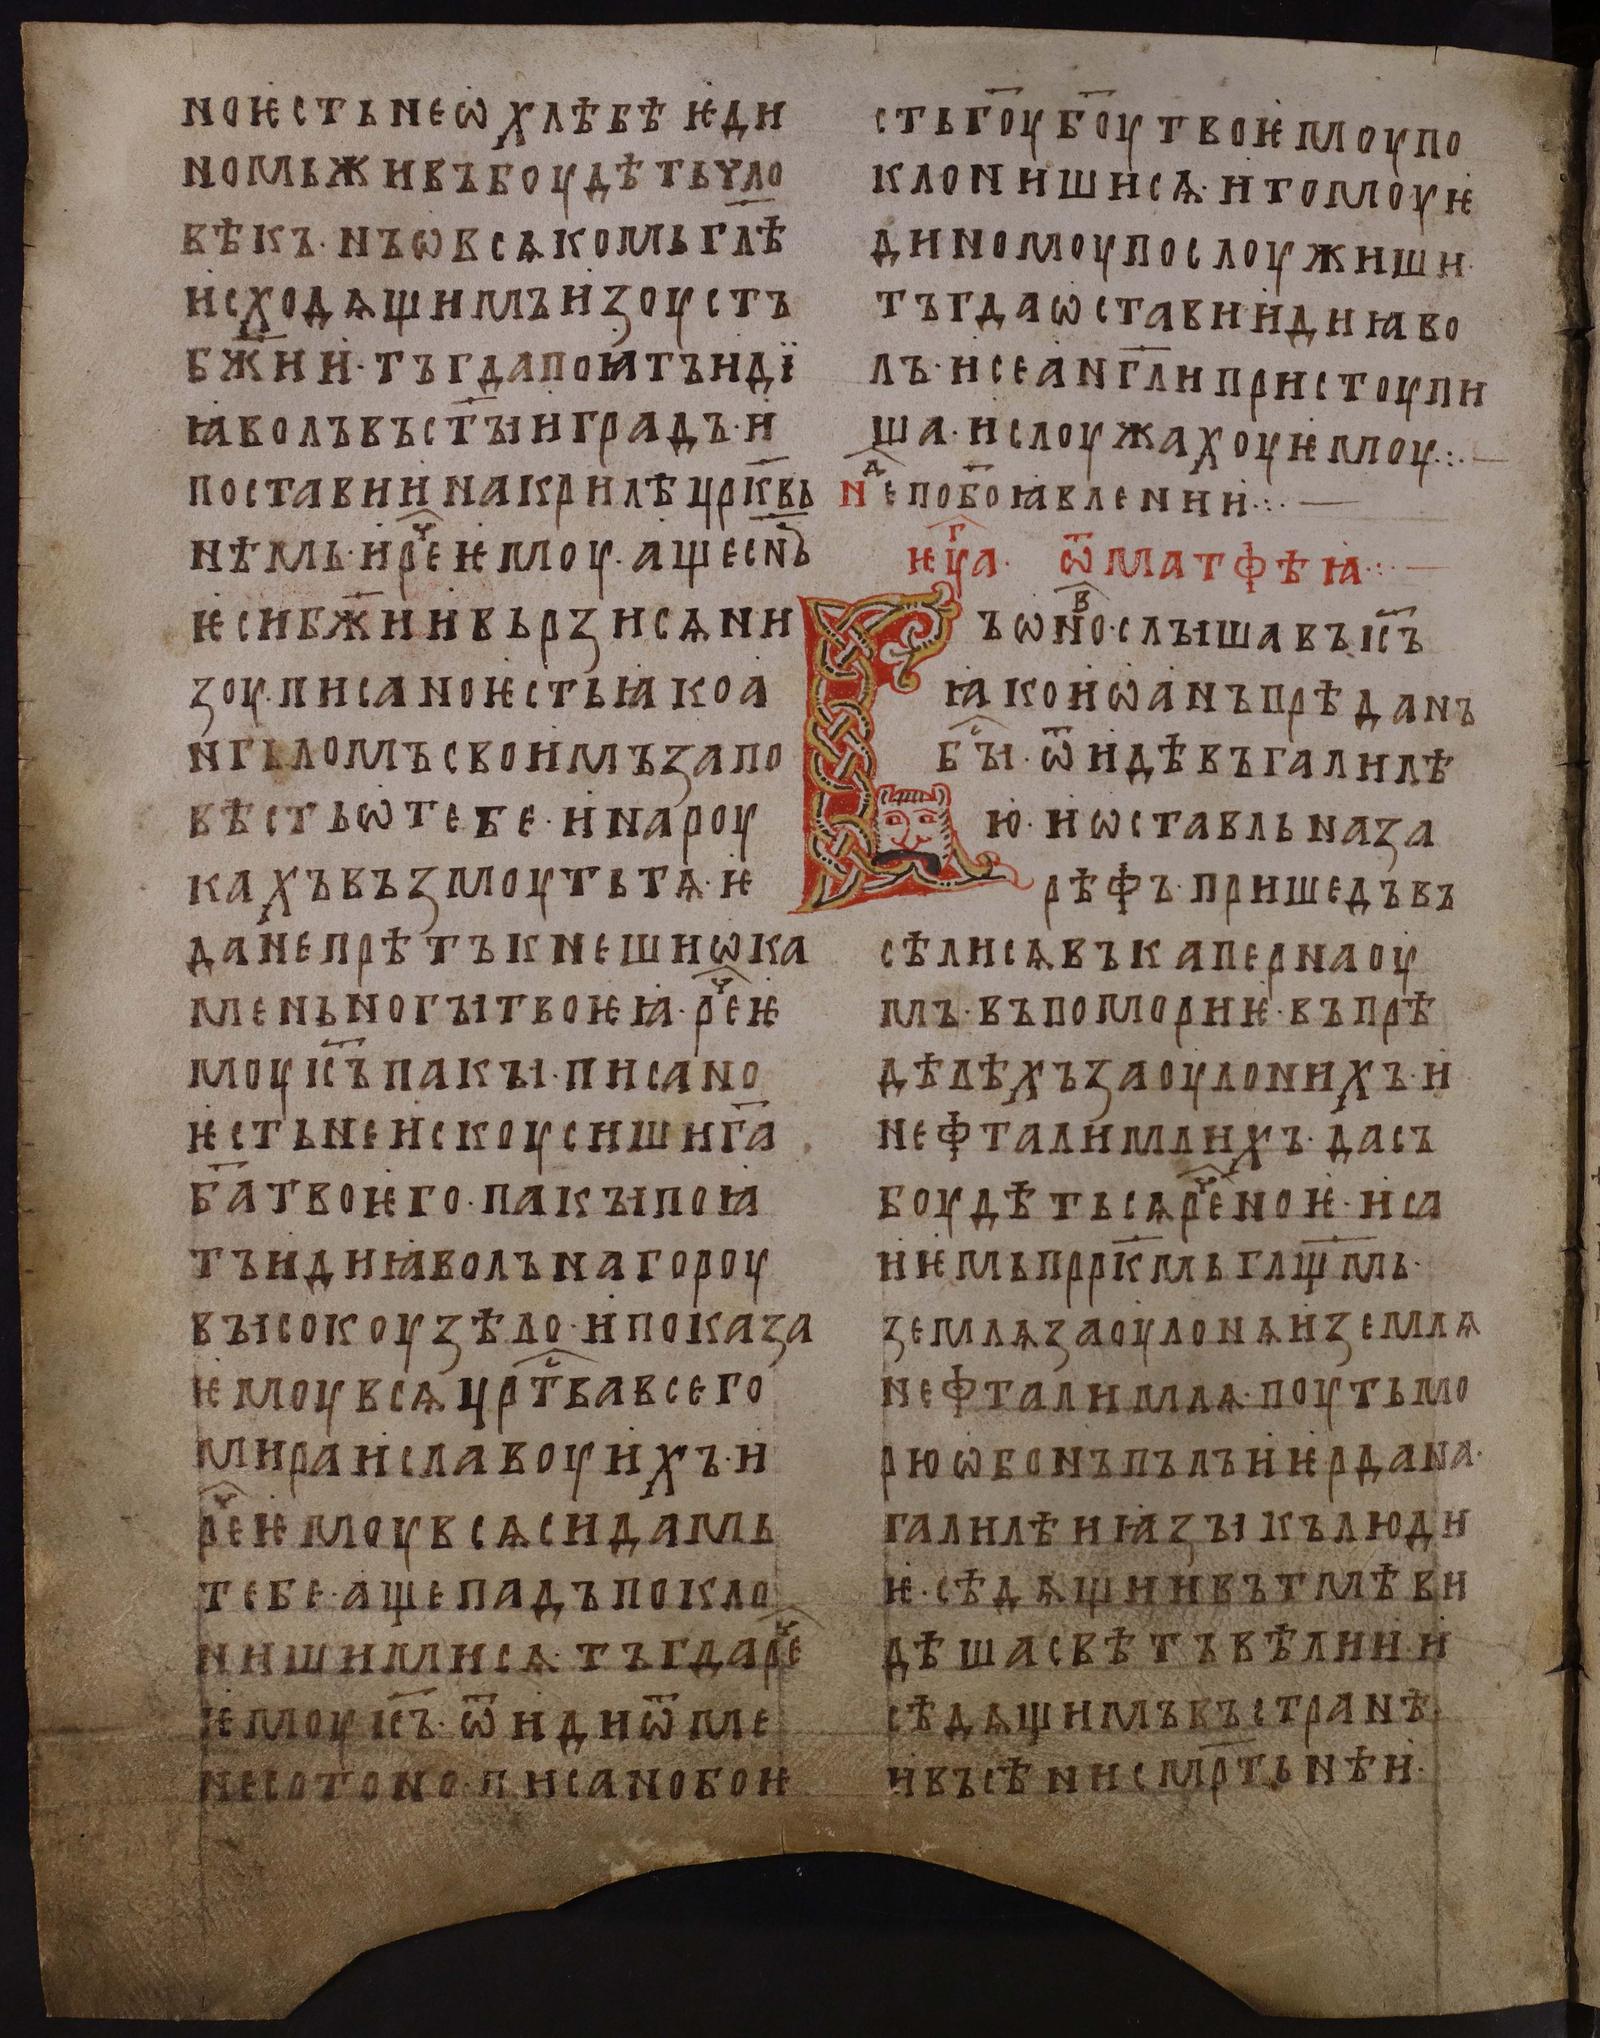 ноѥстьнеѡхлѣбѣѥди
номьживъбоудѣтьчло
вѣкъ·нъѡвсѧкомьглѣ
исходѧщимъизоустъ
бж҃ии·тъгдапоꙗтъиді
ꙗволъвъст҃ꙑиградъ·и
поставиинакрилѣцрк҃вь
нѣмь·ирⷱ҇еѥмоу·ащеесн҃ъ
ѥсибж҃иивьрзисѧни
зоу·писаноѥстьꙗкоа
нгьломъсвоимъзапо
вѣстьѡтебе·инароу
кахъвъзмоутьтѧ·ѥ
данепрѣтъкнешиѡка
меньногꙑтвоѥꙗ·рⷱ҇еѥ
моуіс҃ъпакꙑ·писано
ѥстьнеискоусишиг҃а
б҃атвоѥго·пакꙑпоꙗ
тъидиꙗволънагороу
вꙑсокоузѣло·ипоказа
ѥмоувсѧцрⷭ҇твавсего
мираиславоуихъ·и
рⷱ҇еѥмоувсѧсидамь
тебе·ащепадъпокло
нишимисѧ·тъгдарⷱ҇е
ѥмоуіс҃ъ·ѿидиѿме
несотоно·писанобоѥ
стьг҃оуб҃оутвоѥмоупо
клонишисѧ·итомоуѥ
диномоупослоужиши·
тъгдаѡстави·идиꙗво
лъ·исеанг҃липристоупи
ша·ислоужахоуѥмоу:·—
неⷣпоб҃оꙗвлении:·—
ѥуⷢа· ѿматфѣꙗ:·—
ъѡноⷡ·слꙑшавъіс҃ъ
ꙗкоиѡанъпрѣданъ
бⷭ҇ꙑ·ѿидѣвъгалилѣ
ю·иѡставльназа
рѣфъ·пришедъвъ
сѣлисѧвъкапернаоу
мъ·въпомориѥ·въпрѣ
дѣлѣхъзаоулонихъ·и
нефталимлихъ·дасъ
боудѣтьсѧрⷱ҇еноѥ·иса
иѥмьпррк҃мьглщ҃мь·
землѧзаоулонѧиземлѧ
нефталимлѧ·поутьмо
рюѡбонъпълъиѥрдана·
галилѣꙗзꙑкълюди
ѥ·сѣдѧщиивътмѣви
дѣшасвѣтъвѣлии·и
сѣдѧщимъвъстранѣ
ивъсѣнисмр҃тьнѣи·